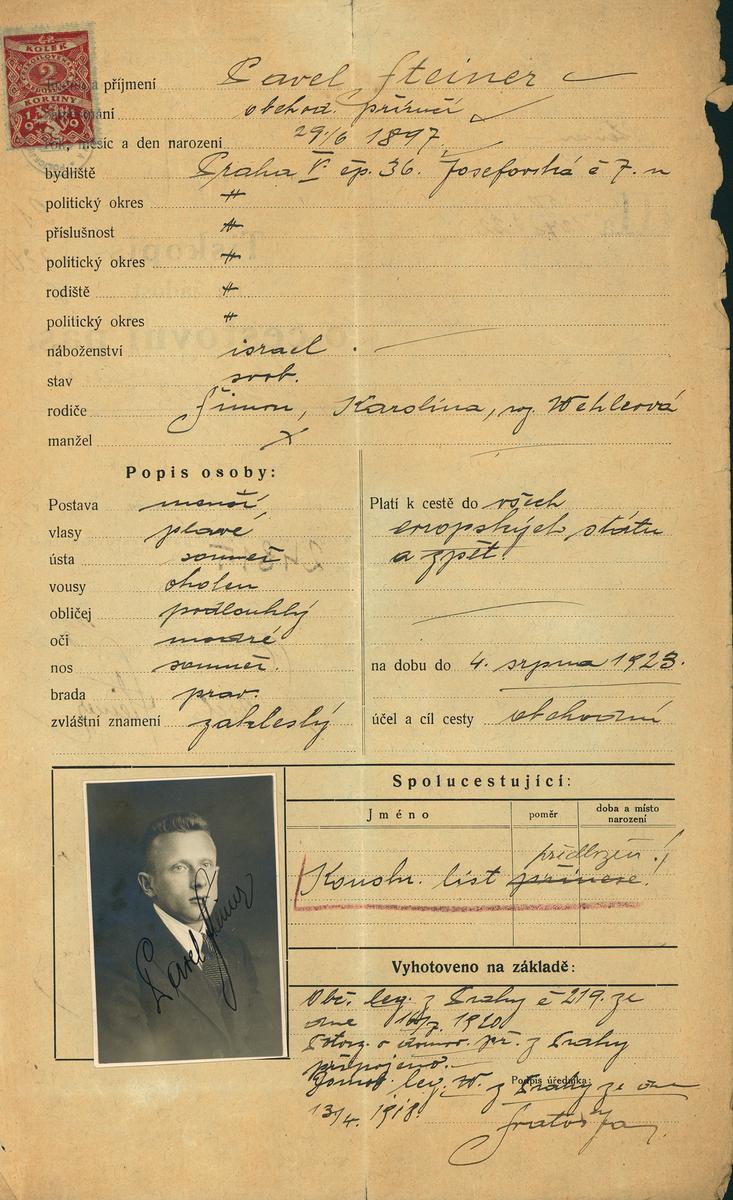 KOLEK
2
KORUNY
1919
a příjmení Pavel Steiner
obchod. příručí
rok, měsíc a den narození 29/6 1897
bydliště Praha V čp. 36. Josefovská č 7. n
politický okres "
příslušnost "
politický okres "
rodiště "
politický okres "
náboženství israel.
stav svob.
rodiče Šimon, Karolína, roz. Wehlerová
manžel X
Popis osoby:
Postava menší
vlasy plavé
ústa souměr
vousy oholen
obličej podlouhlý
oči modré
nos souměr.
brada prav.
zvláštní znamení zakleslý
Platí k cestě do všech
evropských státu
a zpět.
na dobu do 4. srpna 1923.
účel a cíl cesty obchodní
Spolucestující:
Jméno poměr doba a místo narození
předložen!
Konskr. list přinese!
Pavel Steiner
Vyhotoveno na základě:
Obč. leg. z Prahy č 219. ze
dne 14/7. 1920
př. z Prahy
připojeno.
Podpis úředníka:
Domov. leg. z Prahy ze dne
13/4. 1918.